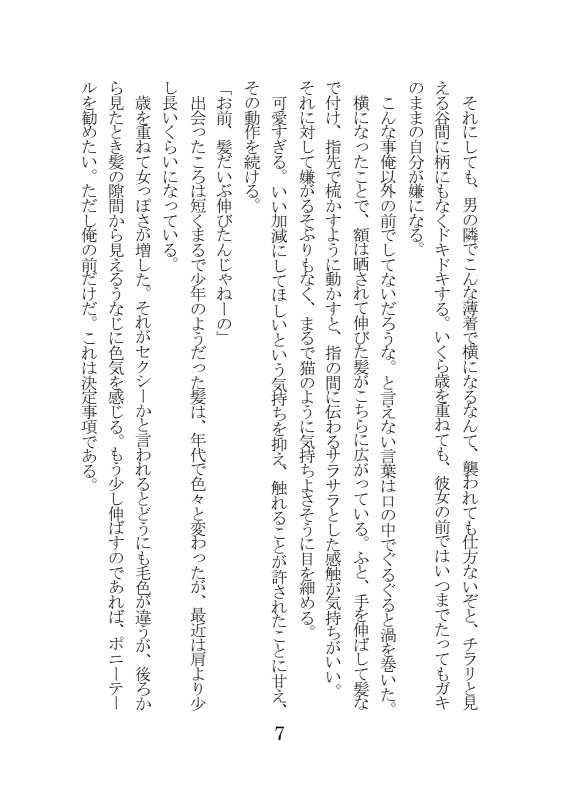 それにしても、男の隣でこんな薄着で横になるなんて、襲われても仕方ないぞと、チラリと見
える谷間に柄にもなくドキドキする。いくら歳を重ねても、彼女の前ではいつまでたってもガキ
のままの自分が嫌になる。
　こんな事俺以外の前でしてないだろうな。と言えない言葉は口の中でぐるぐると渦を巻いた。
　横になったことで、額は晒されて伸びた髪がこちらに広がっている。ふと、手を伸ばして髪な
で付け、指先で梳かすように動かすと、指の間に伝わるサラサラとした感触が気持ちがいい。
それに対して嫌がるそぶりもなく、まるで猫のように気持ちよさそうに目を細める。
　可愛すぎる。いい加減にしてほしいという気持ちを抑え、触れることが許されたことに甘え、
その動作を続ける。
「お前、髪だいぶ伸びたんじゃねーの」
　出会ったころは短くまるで少年のようだった髪は、年代で色々と変わったが、最近は肩より少
し長いくらいになっている。
　歳を重ねて女っぽさが増した。それがセクシーかと言われるとどうにも毛色が違うが、後ろか
ら見たとき髪の隙間から見えるうなじに色気を感じる。もう少し伸ばすのであれば、ポニーテー
ルを勧めたい。ただし俺の前だけだ。これは決定事項である。
7